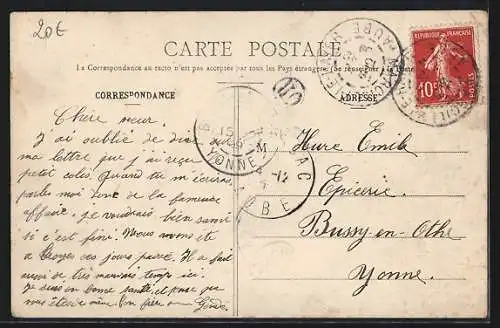 20€
CARTE POSTALE
La Correspondance au recto n'est pas acceptée par tous les Pays étrangers. (Se renseigner à la Poste
REPUBLIQUE FRANÇAISE
10
POSTES
CORRESPONDANCE
ADRESSE
M
YONNE
AUBE
Chère sœur.
J'ai oublié de dire sur
ma lettre que j'ai reçu
petit colis. Quand tu m'écriras
parles moi donc de la fameuse
affaire, je voudrais bien savoir
si c'est fini. Nous avons été
à Troyes ces jours passé. Il a fait
aussi de très mauvais temps ici.
Je suis en bonne santé, et pense que
vous êtes de même. Ton frère
Hure Emile
Epicerie
Bussy-en-Othe
Yonne.